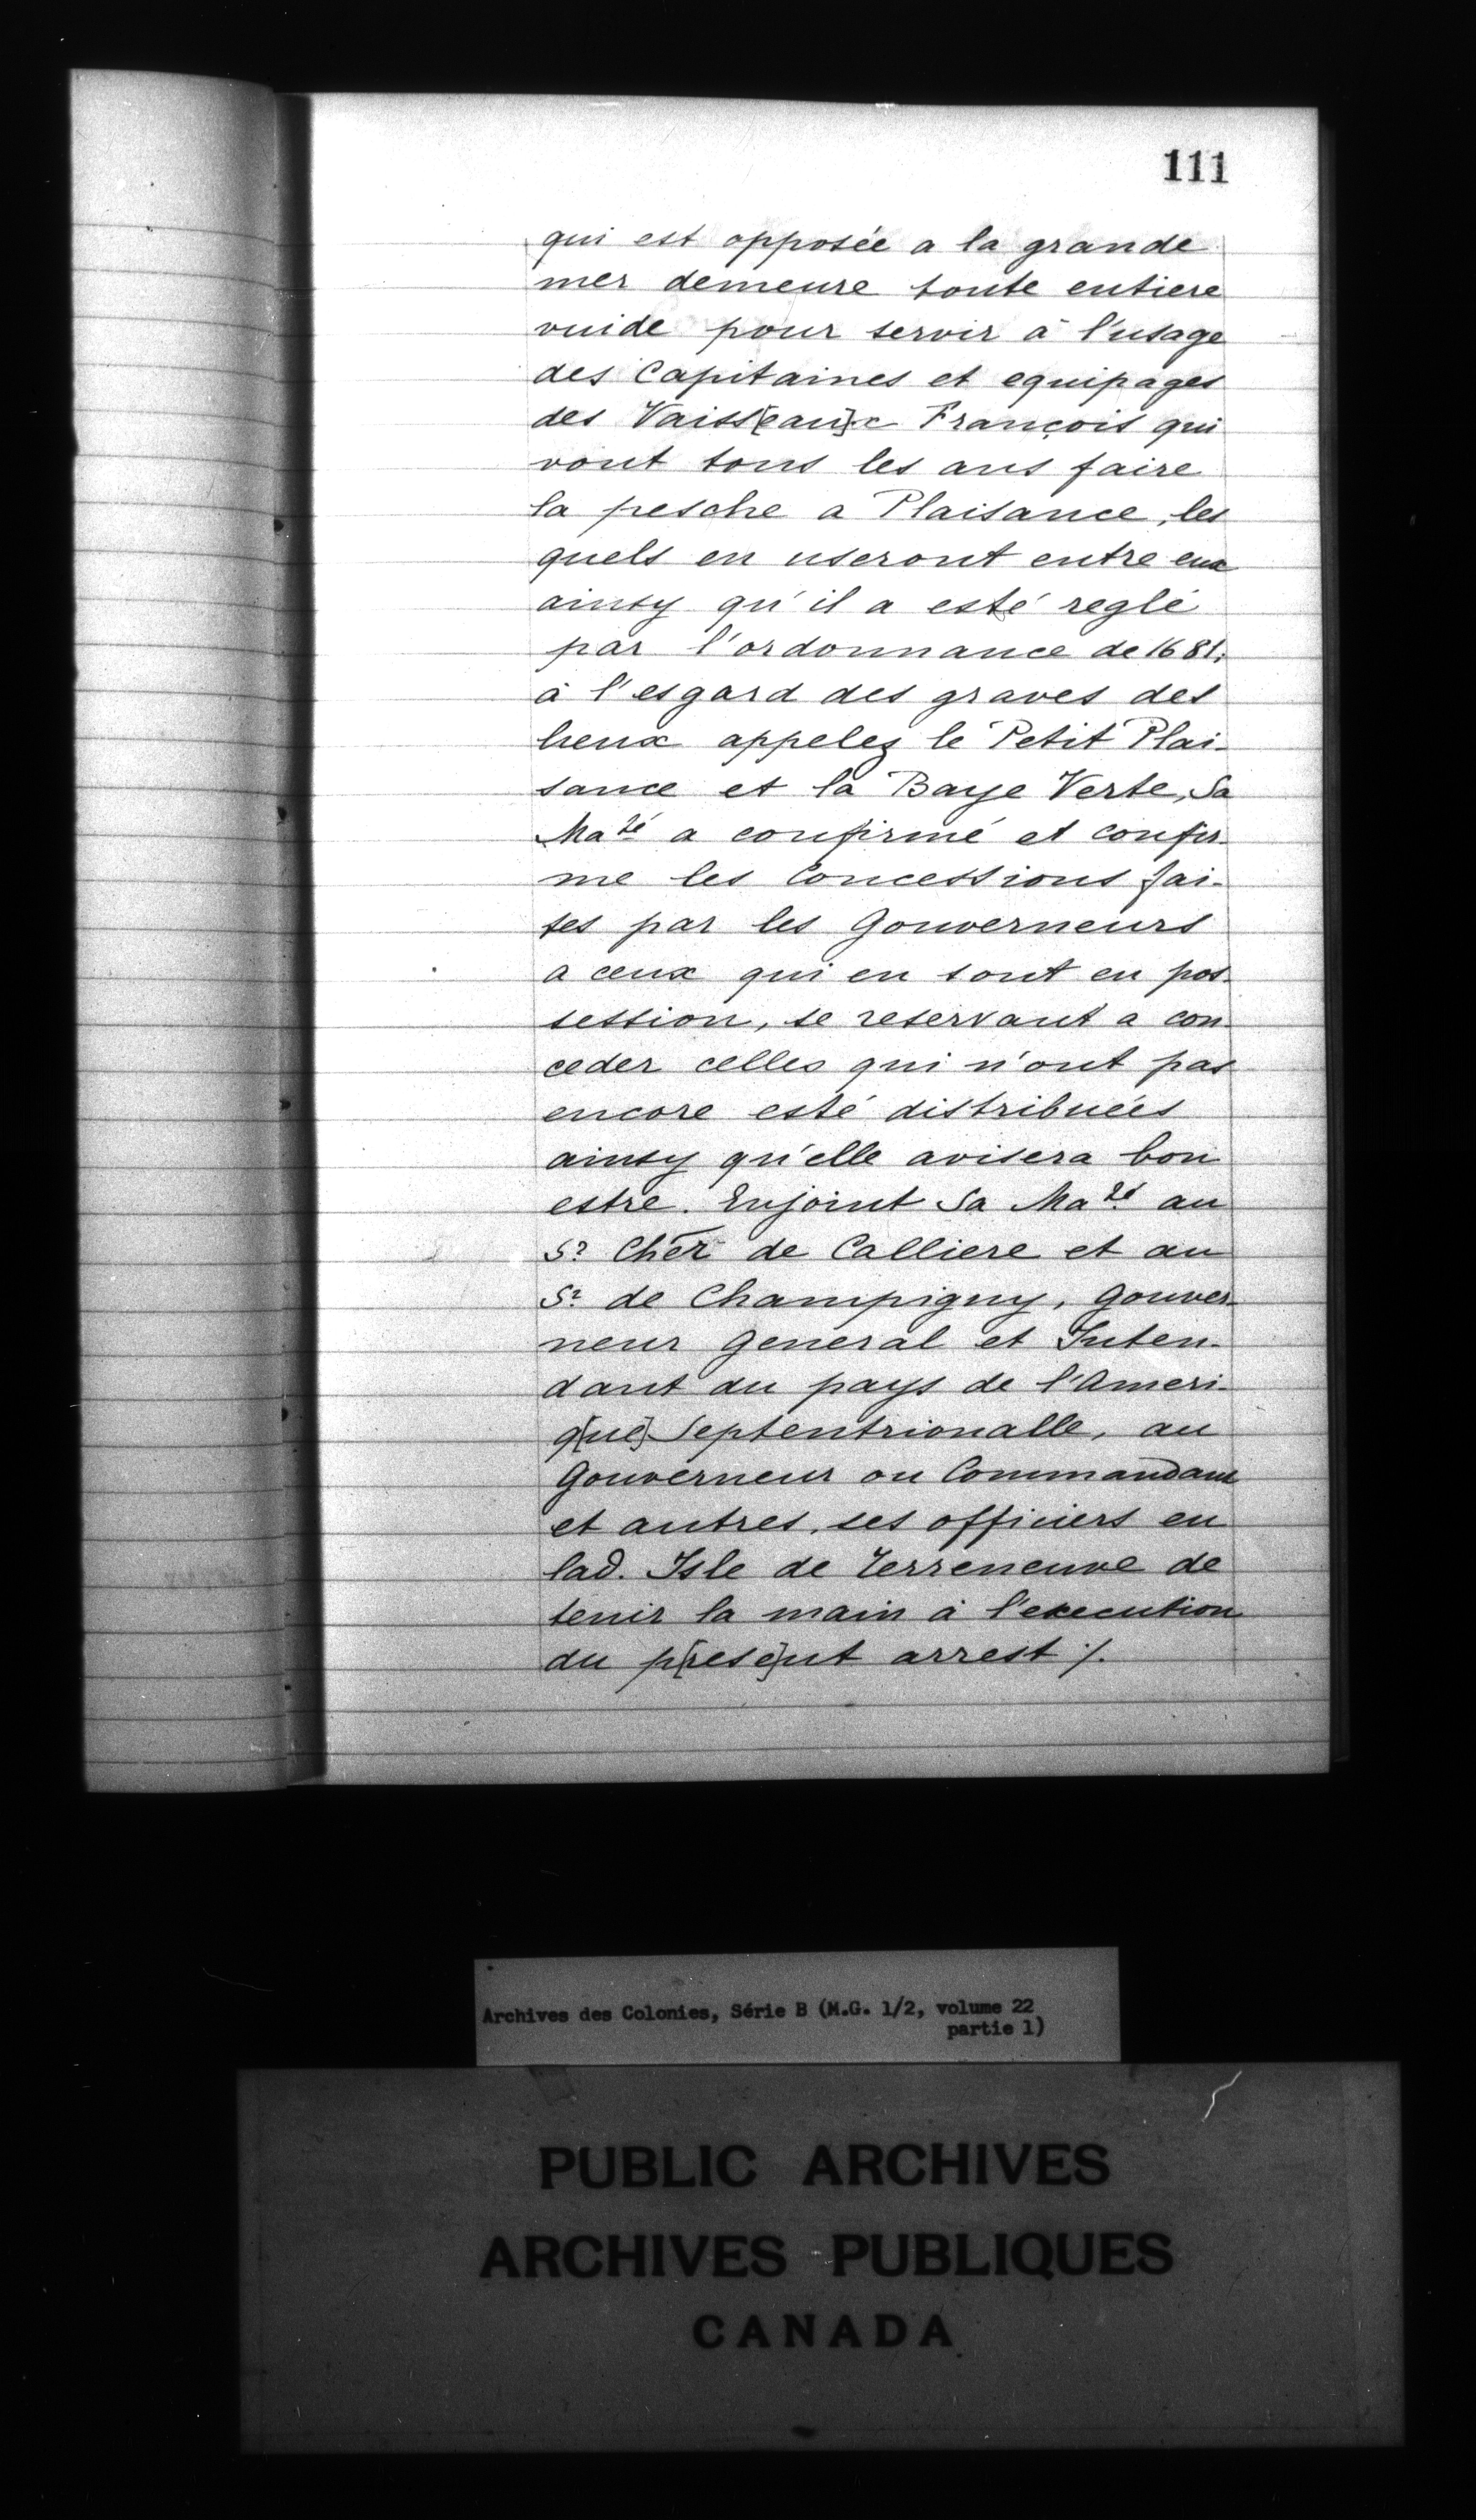 111
qui est opposée a la grande
mer demeure toute entiere
vuide pour servir à l'usage
des Capitaines et equipages
des Vaiss[eau]x François qui
vont tous les ans faire
la pesche a Plaisance, les
quels en useront entre eux
ainsy qu'il a esté reglé
par l'ordonnance de 1681;
à l'esgard des graves des
lieux appelez le Petit Plai-
sance et la Baye Verte, Sa
Ma.té a confirmé et confir-
me les Concessions fai-
tes par les Gouverneurs
a ceux qui en sont en pos-
session, se reservant a con-
ceder celles qui n'ont pas
encore esté distribuées
ainsy qu'elle avisera bon
estre. Enjoint Sa Ma.té au
S.r Cher de Calliere et au
S.r de Champigny, Gouver-
neur General et Inten-
dant du pays de l'Ameri-
q[ue] Septentrionalle, au
Gouverneur ou Commandant
et autres, ses officiers en
lad. Isle de Terreneuve de
tenir la main à l'execution
du p[rese]nt arrest ./.
Archives des Colonies, Série B (M.G. 1/2, volume 22
partie 1)
PUBLIC ARCHIVES
ARCHIVES PUBLIQUES
CANADA